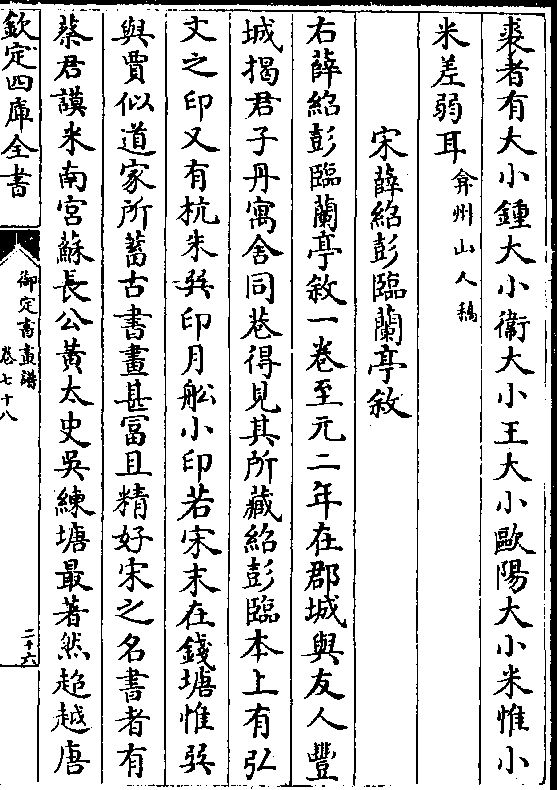 裘者有大小鍾大小衞大小王大小歐陽大小米惟小
米差弱耳弇州山人稿
宋薛紹彭臨蘭亭敘
右薛紹彭臨蘭亭敘一卷至元二年在郡城與友人豐
城揭君子丹寓舍同巷得見其所藏紹彭臨本上有弘
文之印又有杭朱㢲印月舩小印若宋末在錢塘惟㢲
與賈似道家所蓄古書畫甚冨且精好宋之名書者有
蔡君謨米南宮蘇長公黃太史吳練塘最著然趍越唐
欽定四庫全書
御定書畫譜
卷七十八
二十六